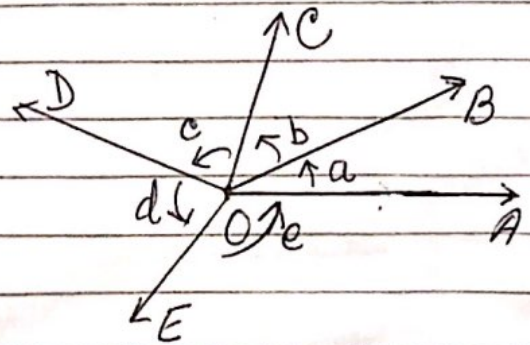 C
D
B
c
b
a
d
O
e
A
E